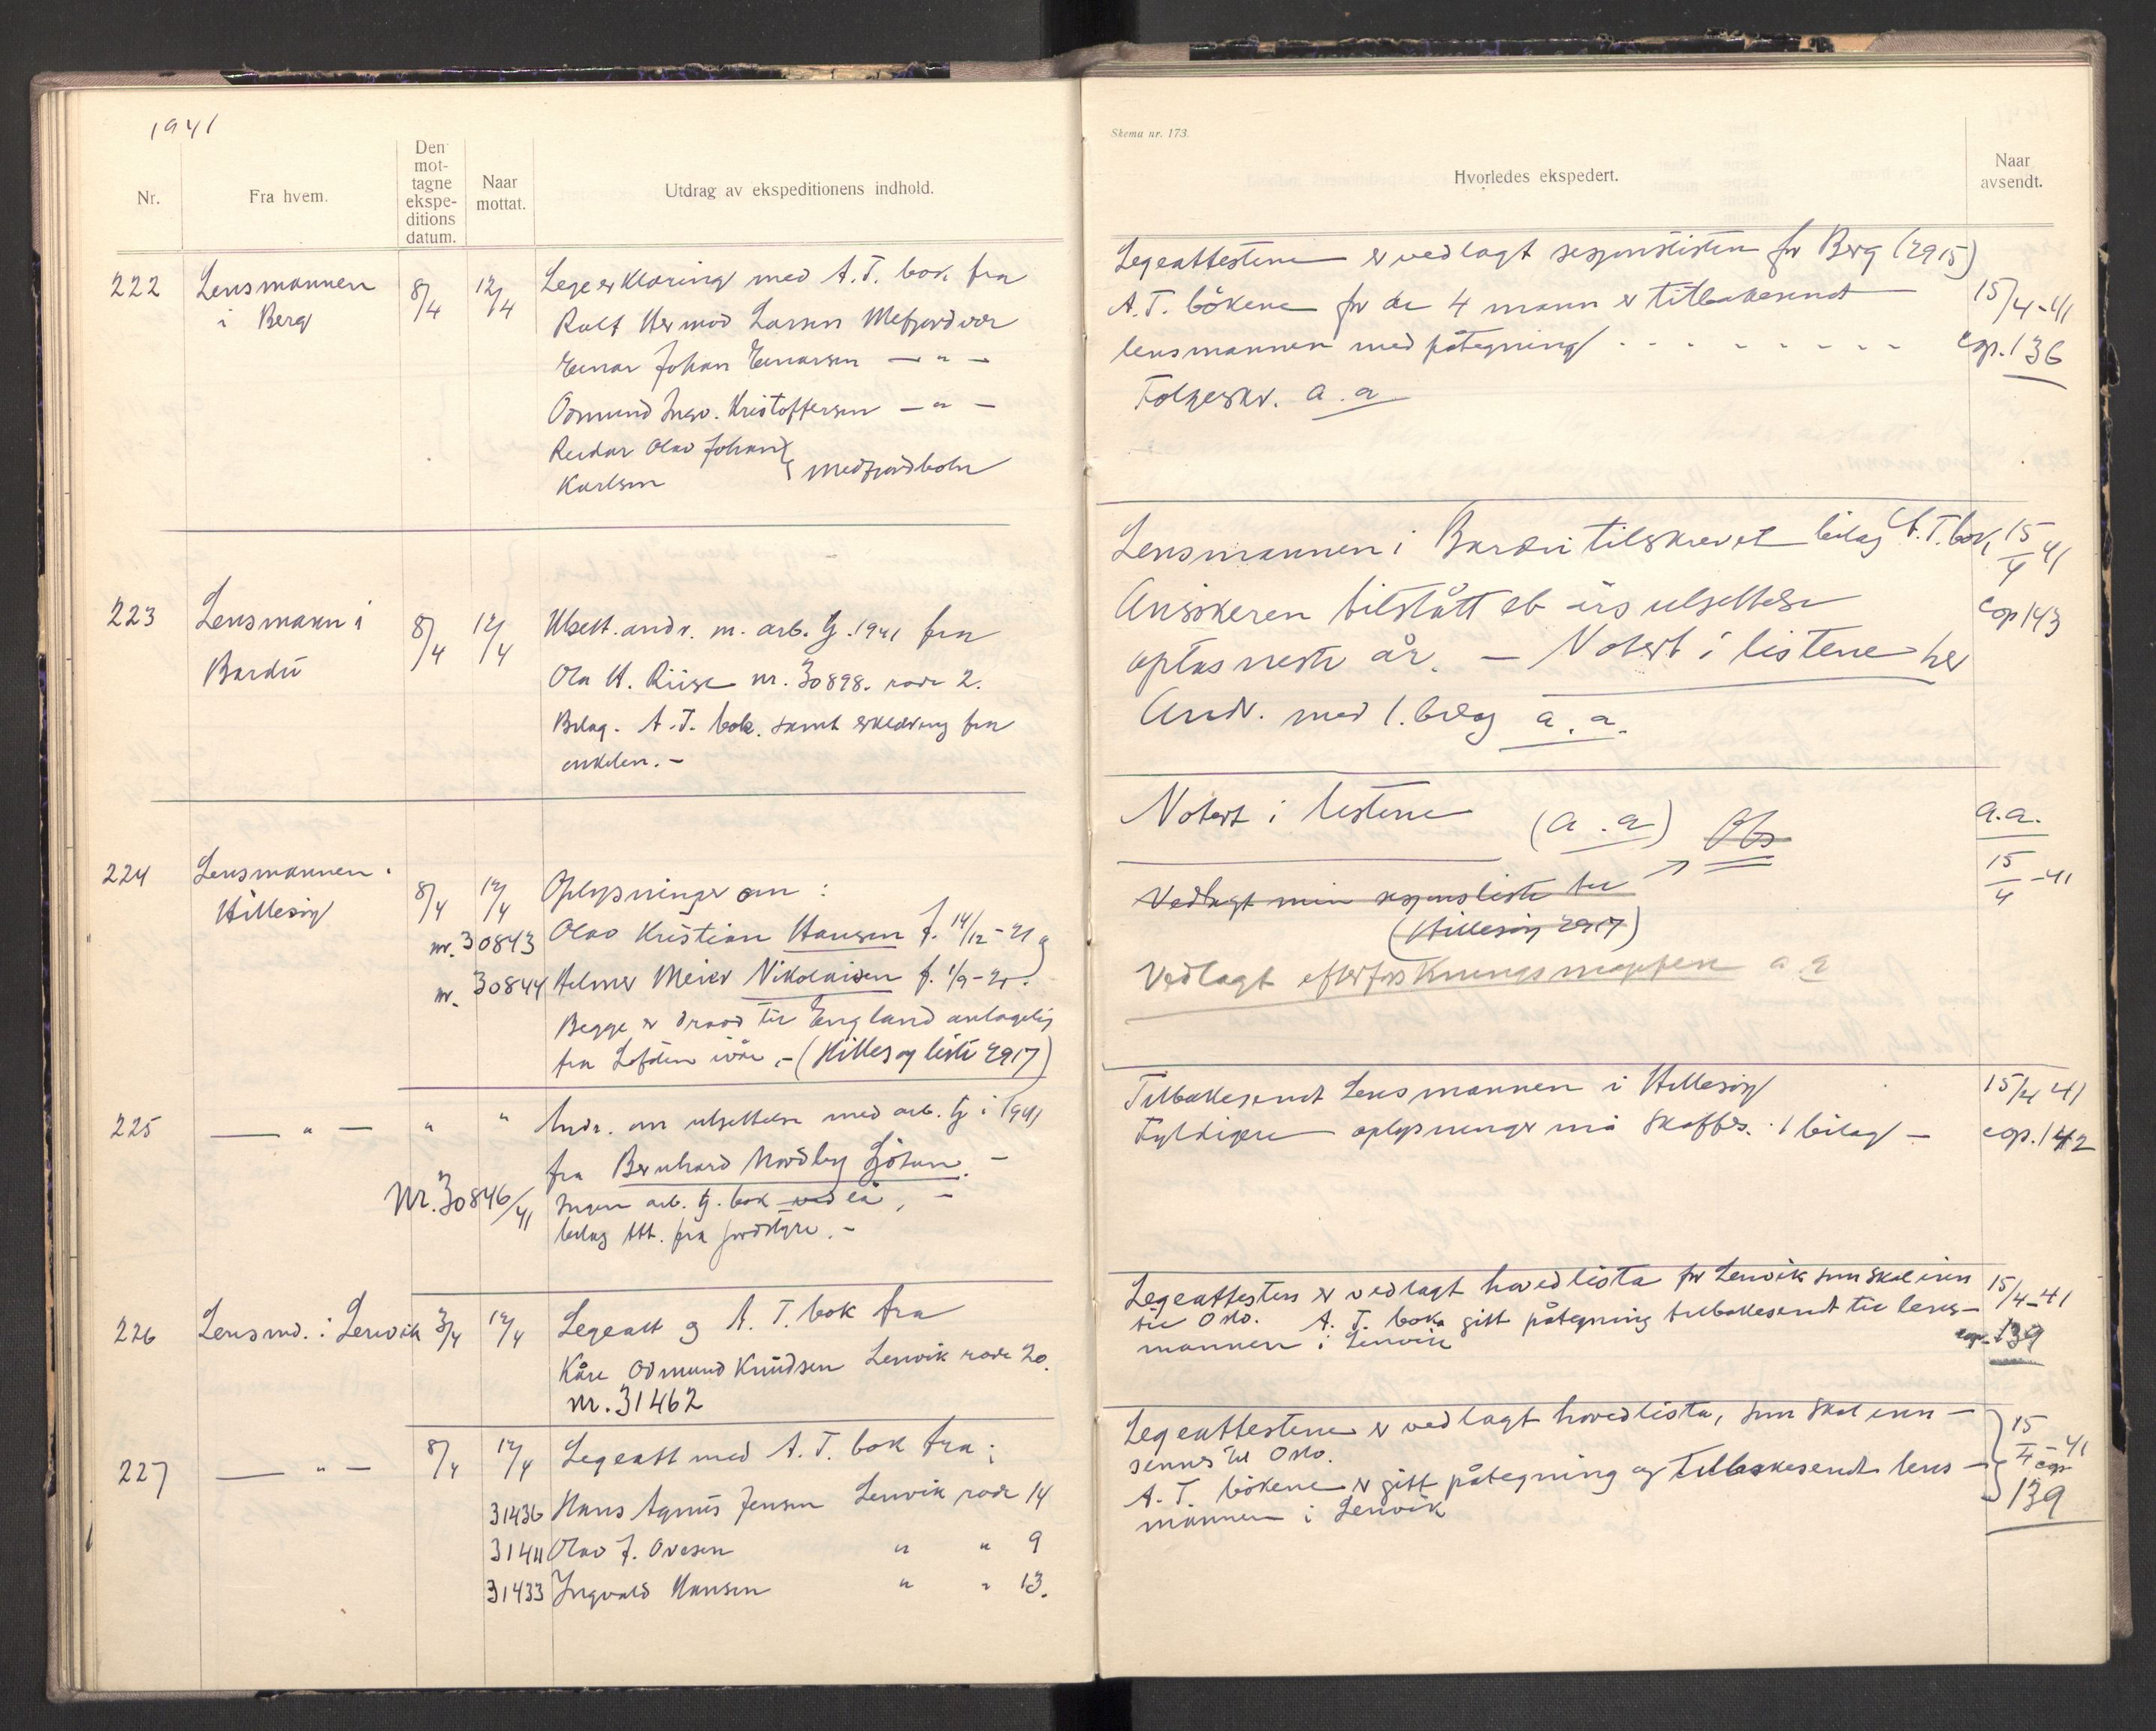 1941
Nr.
Fra hvem.
Den
mot-
tagne
ekspe-
ditions
datum.
Naar
mottat.
Utdrag av ekspeditionens indhold.
222 Lensmannen 8/4 12/4 Legeerklæring med A.T. bok fra
i Berg Ralf Hermod Larsen Mefjordvær
Einar Johan Einarsen — " —
Osmund Ingv. Kristoffersen — " —
Reidar Olav Johan
Karlsen Medfjordbotn
223 Lensmann i 8/4 12/4 Utsett. andr. m. arb. tj. 1941 fra
Bardu Ola H. Riise nr. 30898. rode 2.
Bilag. A.T. bok. samt erklæring fra
enkelen. -
224 Lensmannen i 8/4 12/4 Oplysninger om :
Hillesøy
nr. 30843 Olav Kristian Hansen f. 14/12-21 og
nr. 30844 Helmer Meier Nikolaisen f. 1/9-21.
Begge er dradd til England antagelig
fra Lofoten ivår. - (Hillesøy liste 2917)
225 — " — " " Andr. om utsettelse med arb. tj i 1941
fra Bernhard Nordby -
Nr. 30846/41 Ingen arb. tj. bok ved lå, -
bilag Att. fra jordstyre. -
226 Lensmd. i Lenvik 3/4 12/4 Legeatt og A.T. bok fra
Kåre Odmund Knudsen Lenvik rode 20.
nr. 31462
227 — " — 8/4 12/4 Legeatt med A.T. bok fra :
31436 Hans Agnus Jensen Lenvik rode 14
31411 Olav J. Ovesen " " 9
31433 Ingvald Hansen " " 13.
Skema nr. 173.
Hvorledes ekspedert.
Naar
avsendt.
Legeattestene er vedlagt sesjonslisten for Berg (2915)
A.T. bökene for de 4 mann er tilbakesendt 15/4-41
lensmannen med påtegning - - - - - - - - - cop. 136
Følgeskr. a.a
Lensmannen i Bardu tilskrevet bilag A.T. bok, 15/4 41
Ansökeren tilstått et års utsettelse cop 143
optas neste år. - Notert i listene her
Andr. med 1. bilag a.a.
Notert i listene (a.a) Obs a.a.
Vedlagt min sesjonsliste for 15/4-41
(Hillesöy 2917)
Vedlagt efterforskningsmappen a a
Tilbakesendt Lensmannen i Hillesöy 15/4 41
Fyldigere oplysninger må skaffes. 1 bilag - cop. 142
Legeattesten er vedlagt hovedlista for Lenvik som skal inn 15/4-41
til Oslo. A.T. boka gitt påtegning tilbakesendt til lens-
mannen i Lenvik cop. 139
Legeattestene er vedlagt hovedlista, som skal inn- 15/4-41
sennes til Oslo. cop
A.T. bökene er gitt påtegning og tilbakesendt lens- 139
mannen i Lenvik